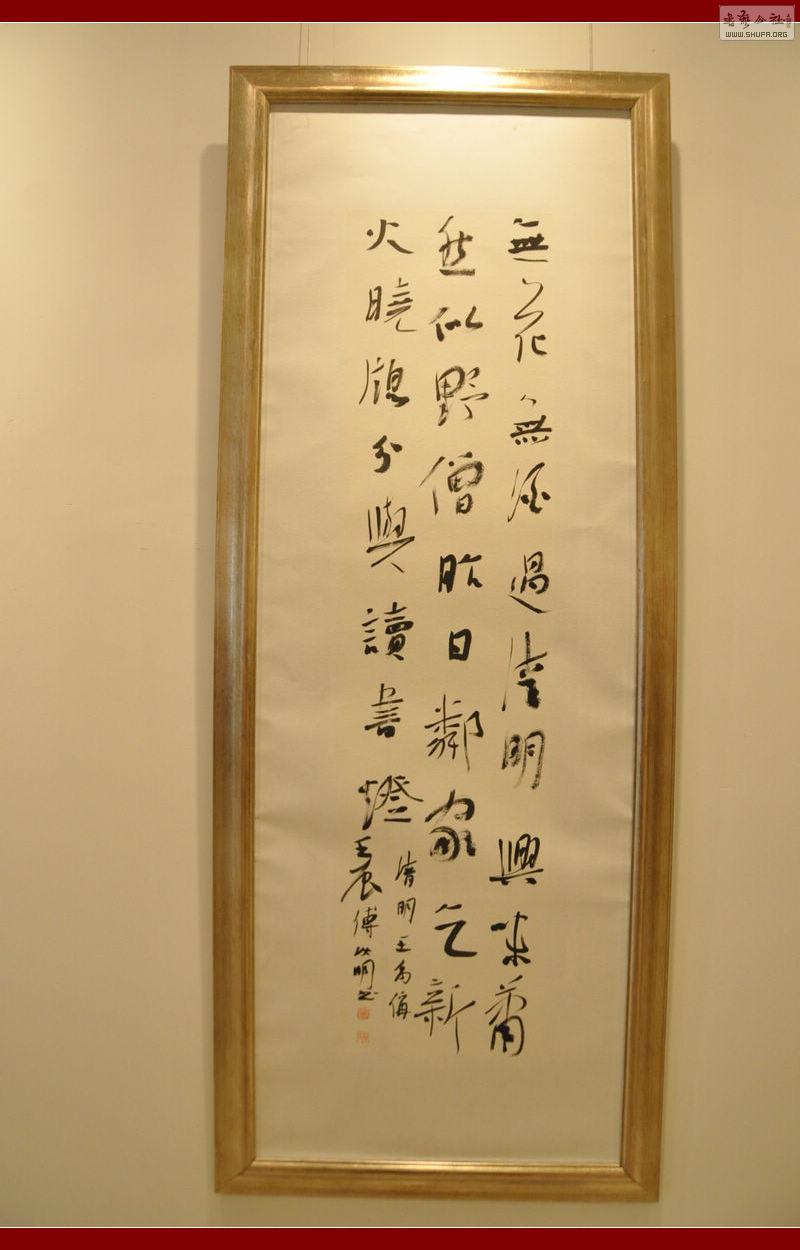 無花無酒過清明興味蕭
然似野僧昨日鄰家乞新
火曉牕分與讀書燈
清明王禹偁
壬辰傅明書
WWW.SHUFA.ORG